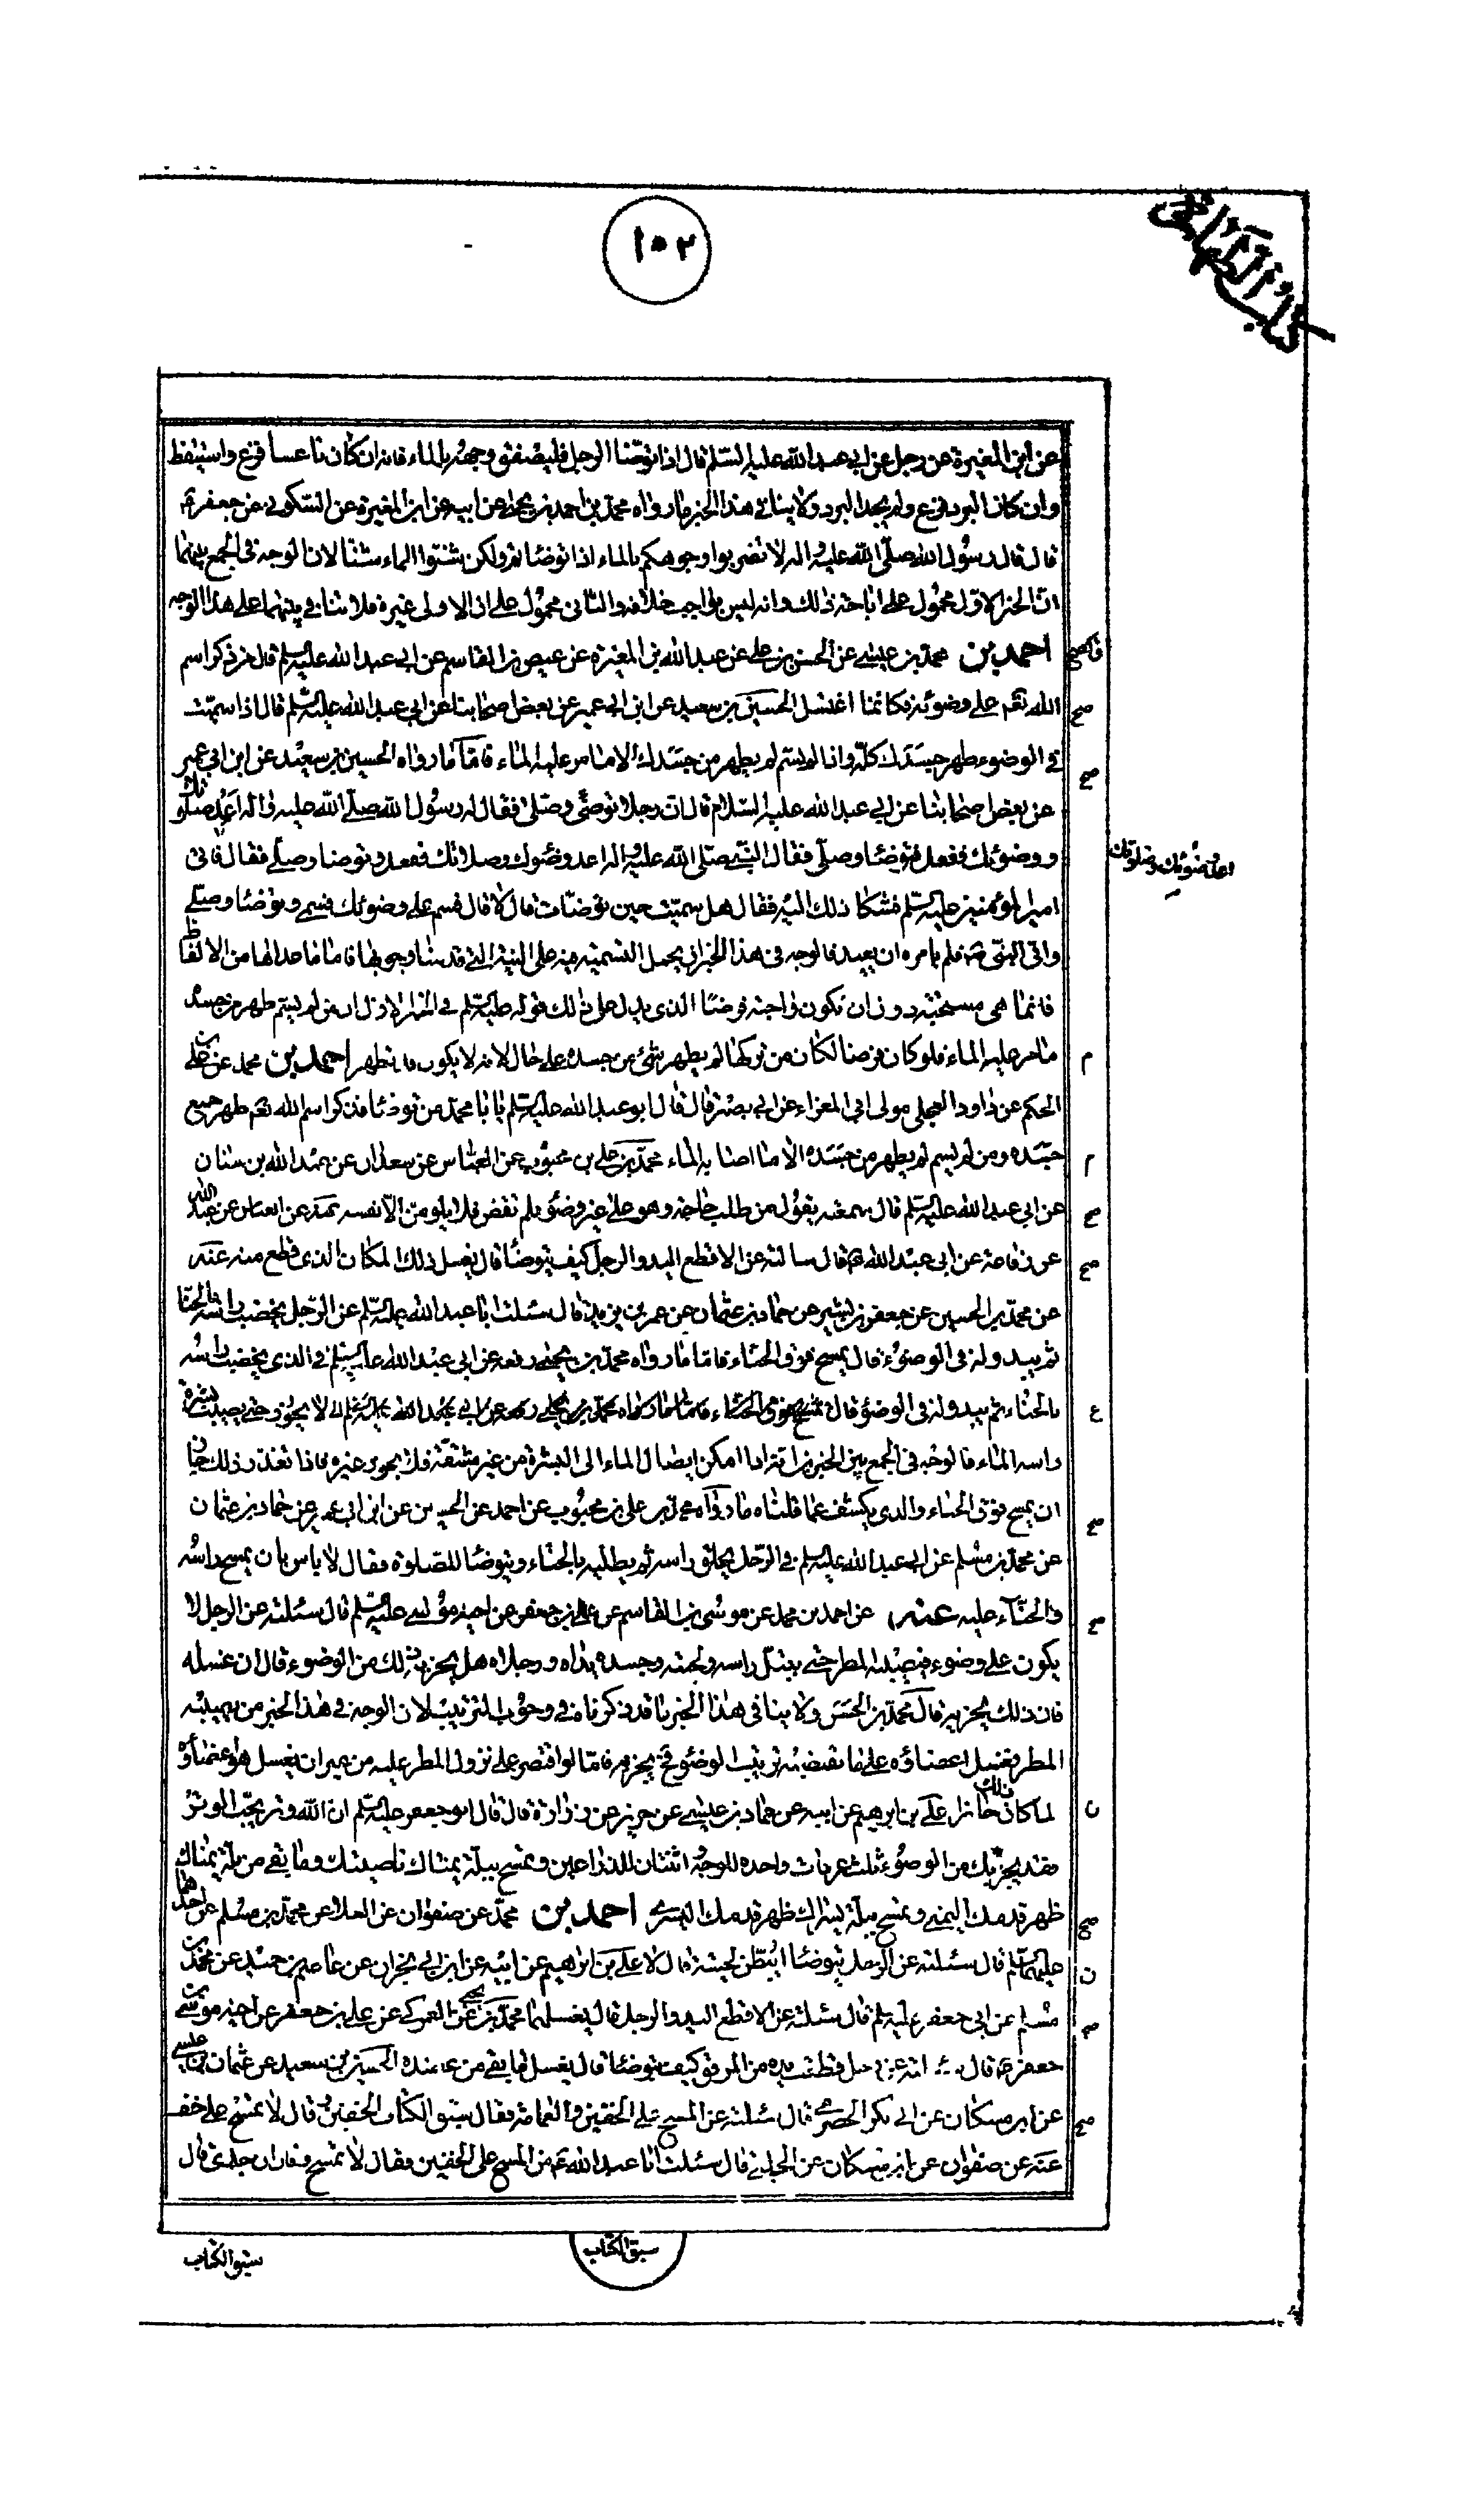 كتاب الطهارة
١٠٢
عن ابن المغيرة عن رجل عن ابي عبد الله عليه السلم قال اذا توضأ الرجل فليصفق وجهه بالماء فانه ان كان ناعسا فزع واستيقظ
وان كان البرد فزع ولم يجد البرد ولا ينافي هذا الخبر ما رواه محمد بن احمد بن يحيى عن ابيه عن ابن المغيرة عن السكوني عن جعفر ع
قال قال رسول الله صلى الله عليه واله لا تضربوا وجوهكم بالماء اذا توضأتم ولكن شنوا الماء شنا لان الوجه في الجمع بينهما
ان الخبر الاول محمول على اباحة ذلك وانه ليس بواجب خلافه والثاني محمول على ان الاولى غيره فلا تنافي بينهما على هذا الوجه
احمد بن محمد بن عيسى عن الحسن بن علي عن عبد الله بن المغيرة عن عيص بن القاسم عن ابي عبد الله عليه السلم قال من ذكر اسم
الله تعم على وضوئه فكانما اغتسل الحسين بن سعيد عن ابن ابي عمير عن بعض اصحابنا عن ابي عبد الله عليه السلم قال اذا سميت
في الوضوء طهر جسدك كله واذا لم تسم لم يطهر من جسدك الا ما مر عليه الماء فاما ما رواه الحسين بن سعيد عن ابن ابي عمير
عن بعض اصحابنا عن ابي عبد الله عليه السلام قال ان رجلا توضى وصلى فقال له رسول الله صلى الله عليه واله اعد صلوتك
ووضوئك ففعل فتوضا وصلى فقال النبي صلى الله عليه واله اعد وضوئك وصلاتك ففعل وتوضا وصلى فقال فاتى
اعد وضوئك وصلوتك
امير المؤمنين عليه السلم فشكا ذلك اليه فقال هل سميت حين توضات قال لا قال فسم على وضوئك فسمى وتوضا وصلى
واتى النبي ص فلم يامره ان يعيد فالوجه في هذا الخبر ان يحمل التسمية فيه على النية التي قدمنا وجوبها فاما ما عداها من الالفاظ
فانما هي مستحبة دون ان تكون واجبة فرضا الذي يدل على ذلك قوله عليه السلم في الخبر الاول ان من لم يسم طهر من جسده
ما مر عليه الماء فلو كان فرضا لكان من تركها لم يطهر شئ من جسده على حال لانه لا يكون قد تطهر احمد بن محمد عن علي بن
الحكم عن داود العجلي مولى ابي المعزاء عن ابي بصير قال قال ابو عبد الله عليه السلم يا با محمد من توضا فذكر اسم الله تعم طهر جميع
جسده ومن لم يسم لم يطهر من جسده الا ما اصابه الماء محمد بن علي بن محبوب عن العباس عن سعدان عن عبد الله بن سنان
عن ابي عبد الله عليه السلم قال سمعته يقول من طلب حاجة وهو على غير وضوء فلم تقض فلا يلومن الا نفسه عنه عن العباس عن عبد الله
عن رفاعة عن ابي عبد الله ع قال سالته عن الاقطع اليد والرجل كيف يتوضا قال يغسل ذلك المكان الذي قطع منه عنه
عن محمد بن الحسين عن جعفر بن بشير عن حماد بن عثمان عن عمر بن يزيد قال سئلت ابا عبد الله عليه السلم عن الرجل يخضب راسه بالحنا
ثم يبدو له في الوضوء قال يمسح فوق الحناء فاما ما رواه محمد بن يحيى رفعه عن ابي عبد الله عليه السلم في الذي يخضب راسه
بالحناء ثم يبدو له في الوضوء قال لا يجوز حتى يصيب بشرة
راسه الماء فالوجه في الجمع بين الخبرين انه اذا امكن ايصال الماء الى البشرة من غير مشقة فلا يجوز غيره فاذا تعذر ذلك جاز
ان يمسح فوق الحناء والذي يكشف عما قلناه ما رواه محمد بن علي بن محبوب عن احمد عن الحسين عن ابن ابي عمير عن حماد بن عثمان
عن محمد بن مسلم عن ابي عبد الله عليه السلم في الرجل يحلق راسه ثم يطليه بالحناء ويتوضا للصلوة فقال لا باس بان يمسح راسه
والحناء عليه عنه عن احمد بن محمد عن موسى بن القاسم عن علي بن جعفر عن اخيه موسى عليه السلم قال سئلته عن الرجل لا
يكون على وضوء فيصيبه المطر حتى يبتل راسه ولحيته وجسده ويداه ورجلاه هل يجزيه ذلك من الوضوء قال ان غسله
فان ذلك يجزيه قال محمد بن الحسن ولا ينافي هذا الخبر ما قدمنا ذكرناه في وجوب الترتيب لان الوجه في هذا الخبر من يصيبه
المطر فيغسل اعضاؤه على ما تقتضيه ترتيب الوضوء فح يجزيه فاما لو اقتصر على نزول المطر عليه من غير ان يغسل هو اعضاؤه
لما كان ذلك جائزا علي بن ابرهيم عن ابيه عن حماد بن عيسى عن حريز عن زرارة قال قال ابو جعفر عليه السلم ان الله وتر يحب الوتر
فقد يجزيك من الوضوء ثلث غرفات واحدة للوجه اثنتان للذراعين وتمسح ببلة يمناك ناصيتك وما بقى من بلة يمناك
ظهر قدمك اليمنى وتمسح ببلة يسراك ظهر قدمك اليسرى احمد بن محمد عن صفوان عن العلا عن محمد بن مسلم عن احدهما
عليهما السلم قال سئلته عن الرجل يتوضا ايبطن لحيته قال لا علي بن ابراهيم عن ابيه عن ابن ابي نجران عن عاصم بن حميد عن محمد بن
مسلم عن ابي جعفر عليه السلم قال سئلته عن الاقطع اليد والرجل قال يغسلهما محمد بن يحيى عن العمركي عن علي بن جعفر عن اخيه موسى بن
جعفر ع قال سئلته عن رجل قطعت يده من المرفق كيف يتوضا قال يغسل ما بقى من عضده الحسين بن سعيد عن عثمان بن عيسى
عن ابن مسكان عن ابي بكر الحضرمي قال سئلته عن المسح على الخفين والعمامة فقال سبق الكتاب الخفين وقال لا تمسح على خف
عنه عن صفوان عن ابن مسكان عن الحلبي قال سئلت ابا عبد الله ع عن المسح على الخفين فقال لا تمسح وقال ان جدي قال
سبق الكتاب
سبق الكتاب